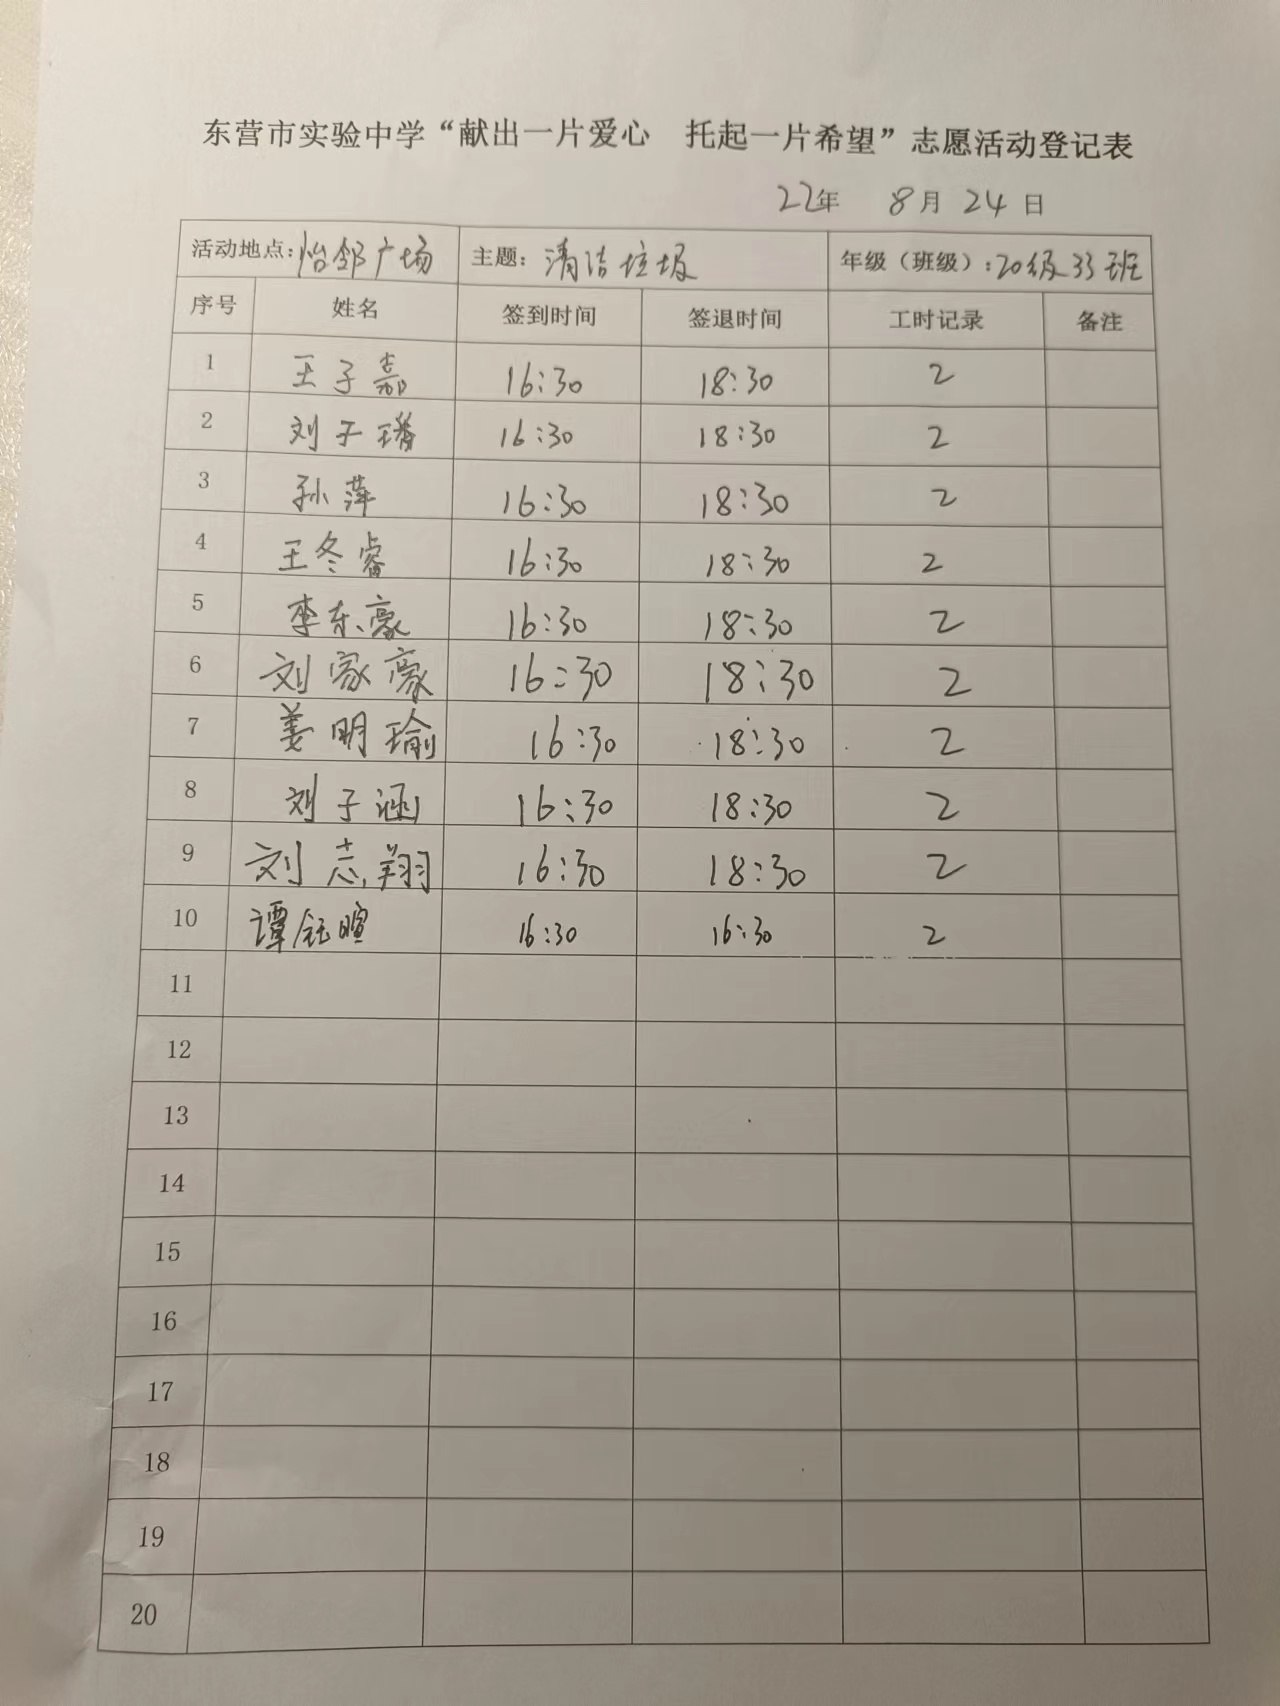 东营市实验中学“献出一片爱心 托起一片希望”志愿活动登记表
22年 8月24日
活动地点:怡邻广场 主题:清洁垃圾 年级（班级）:20级33班
序号 姓名 签到时间 签退时间 工时记录 备注
1 王子嘉 16:30 18:30 2
2 刘子璠 16:30 18:30 2
3 孙萍 16:30 18:30 2
4 王冬睿 16:30 18:30 2
5 李东豪 16:30 18:30 2
6 刘家豪 16:30 18:30 2
7 姜明瑜 16:30 18:30 2
8 刘子涵 16:30 18:30 2
9 刘志翔 16:30 18:30 2
10 谭钰暄 16:30 16:30 2
11
12
13
14
15
16
17
18
19
20